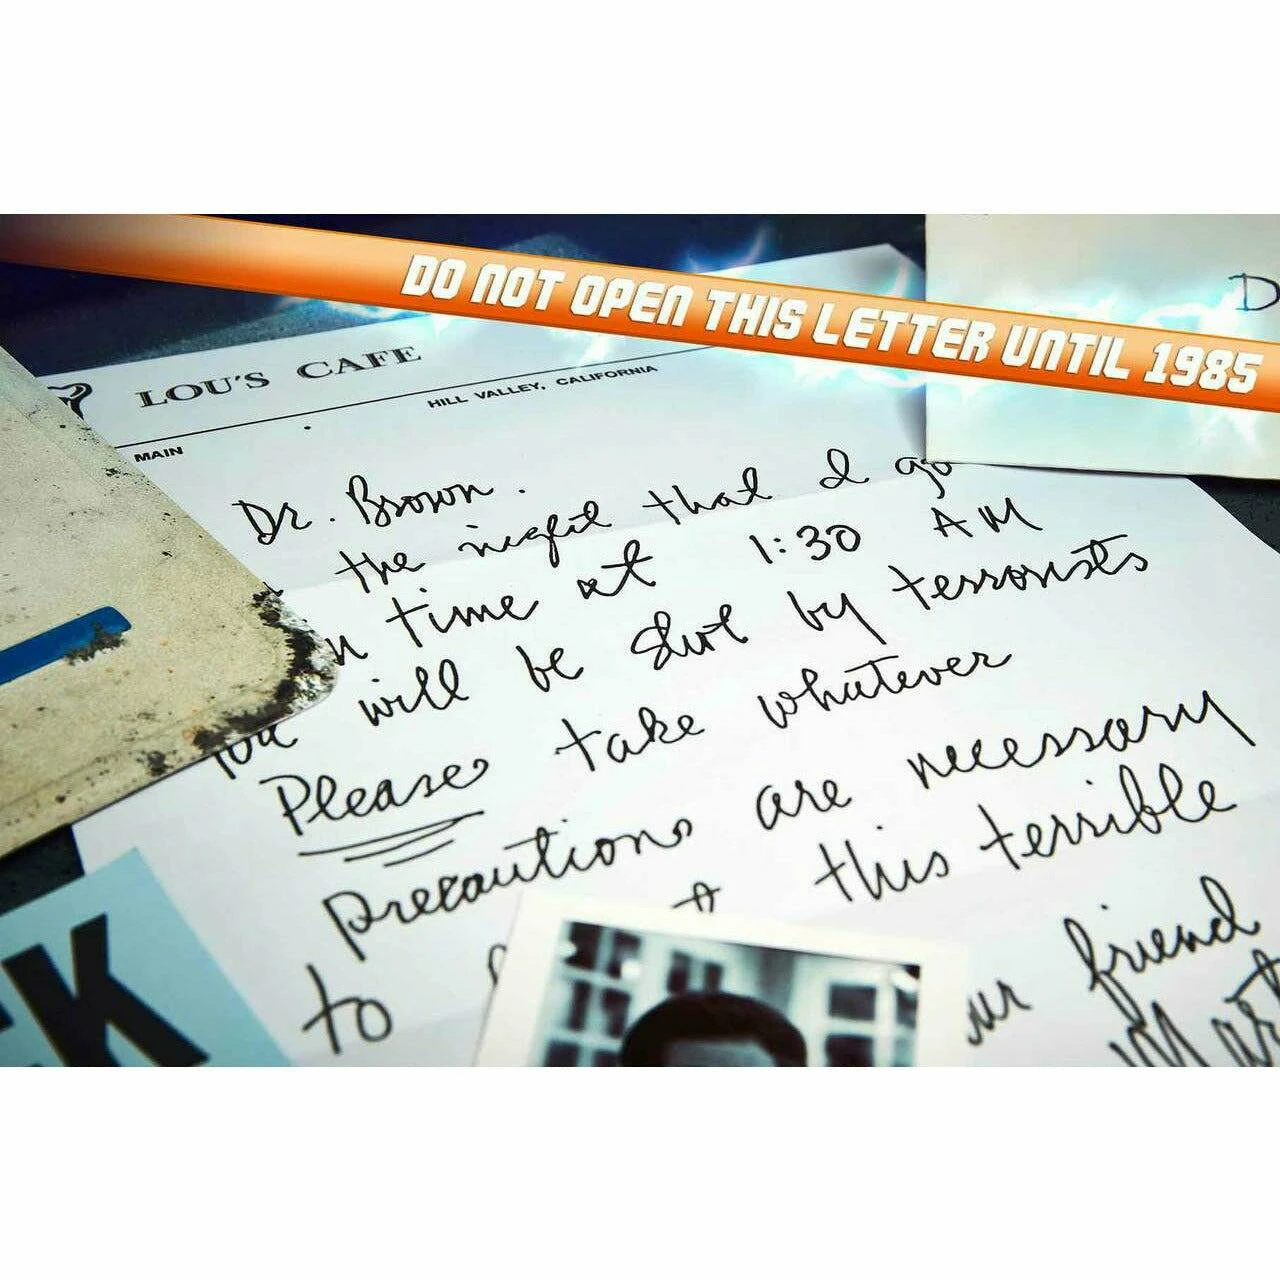 DO NOT OPEN THIS LETTER UNTIL 1985
D
LOU'S CAFE
HILL VALLEY, CALIFORNIA
MAIN
Dr. Brown.
the night that I go
time at 1:30 AM
you will be shot by terrorists
Please take whatever
precautions are necessary
to this terrible
friend
K